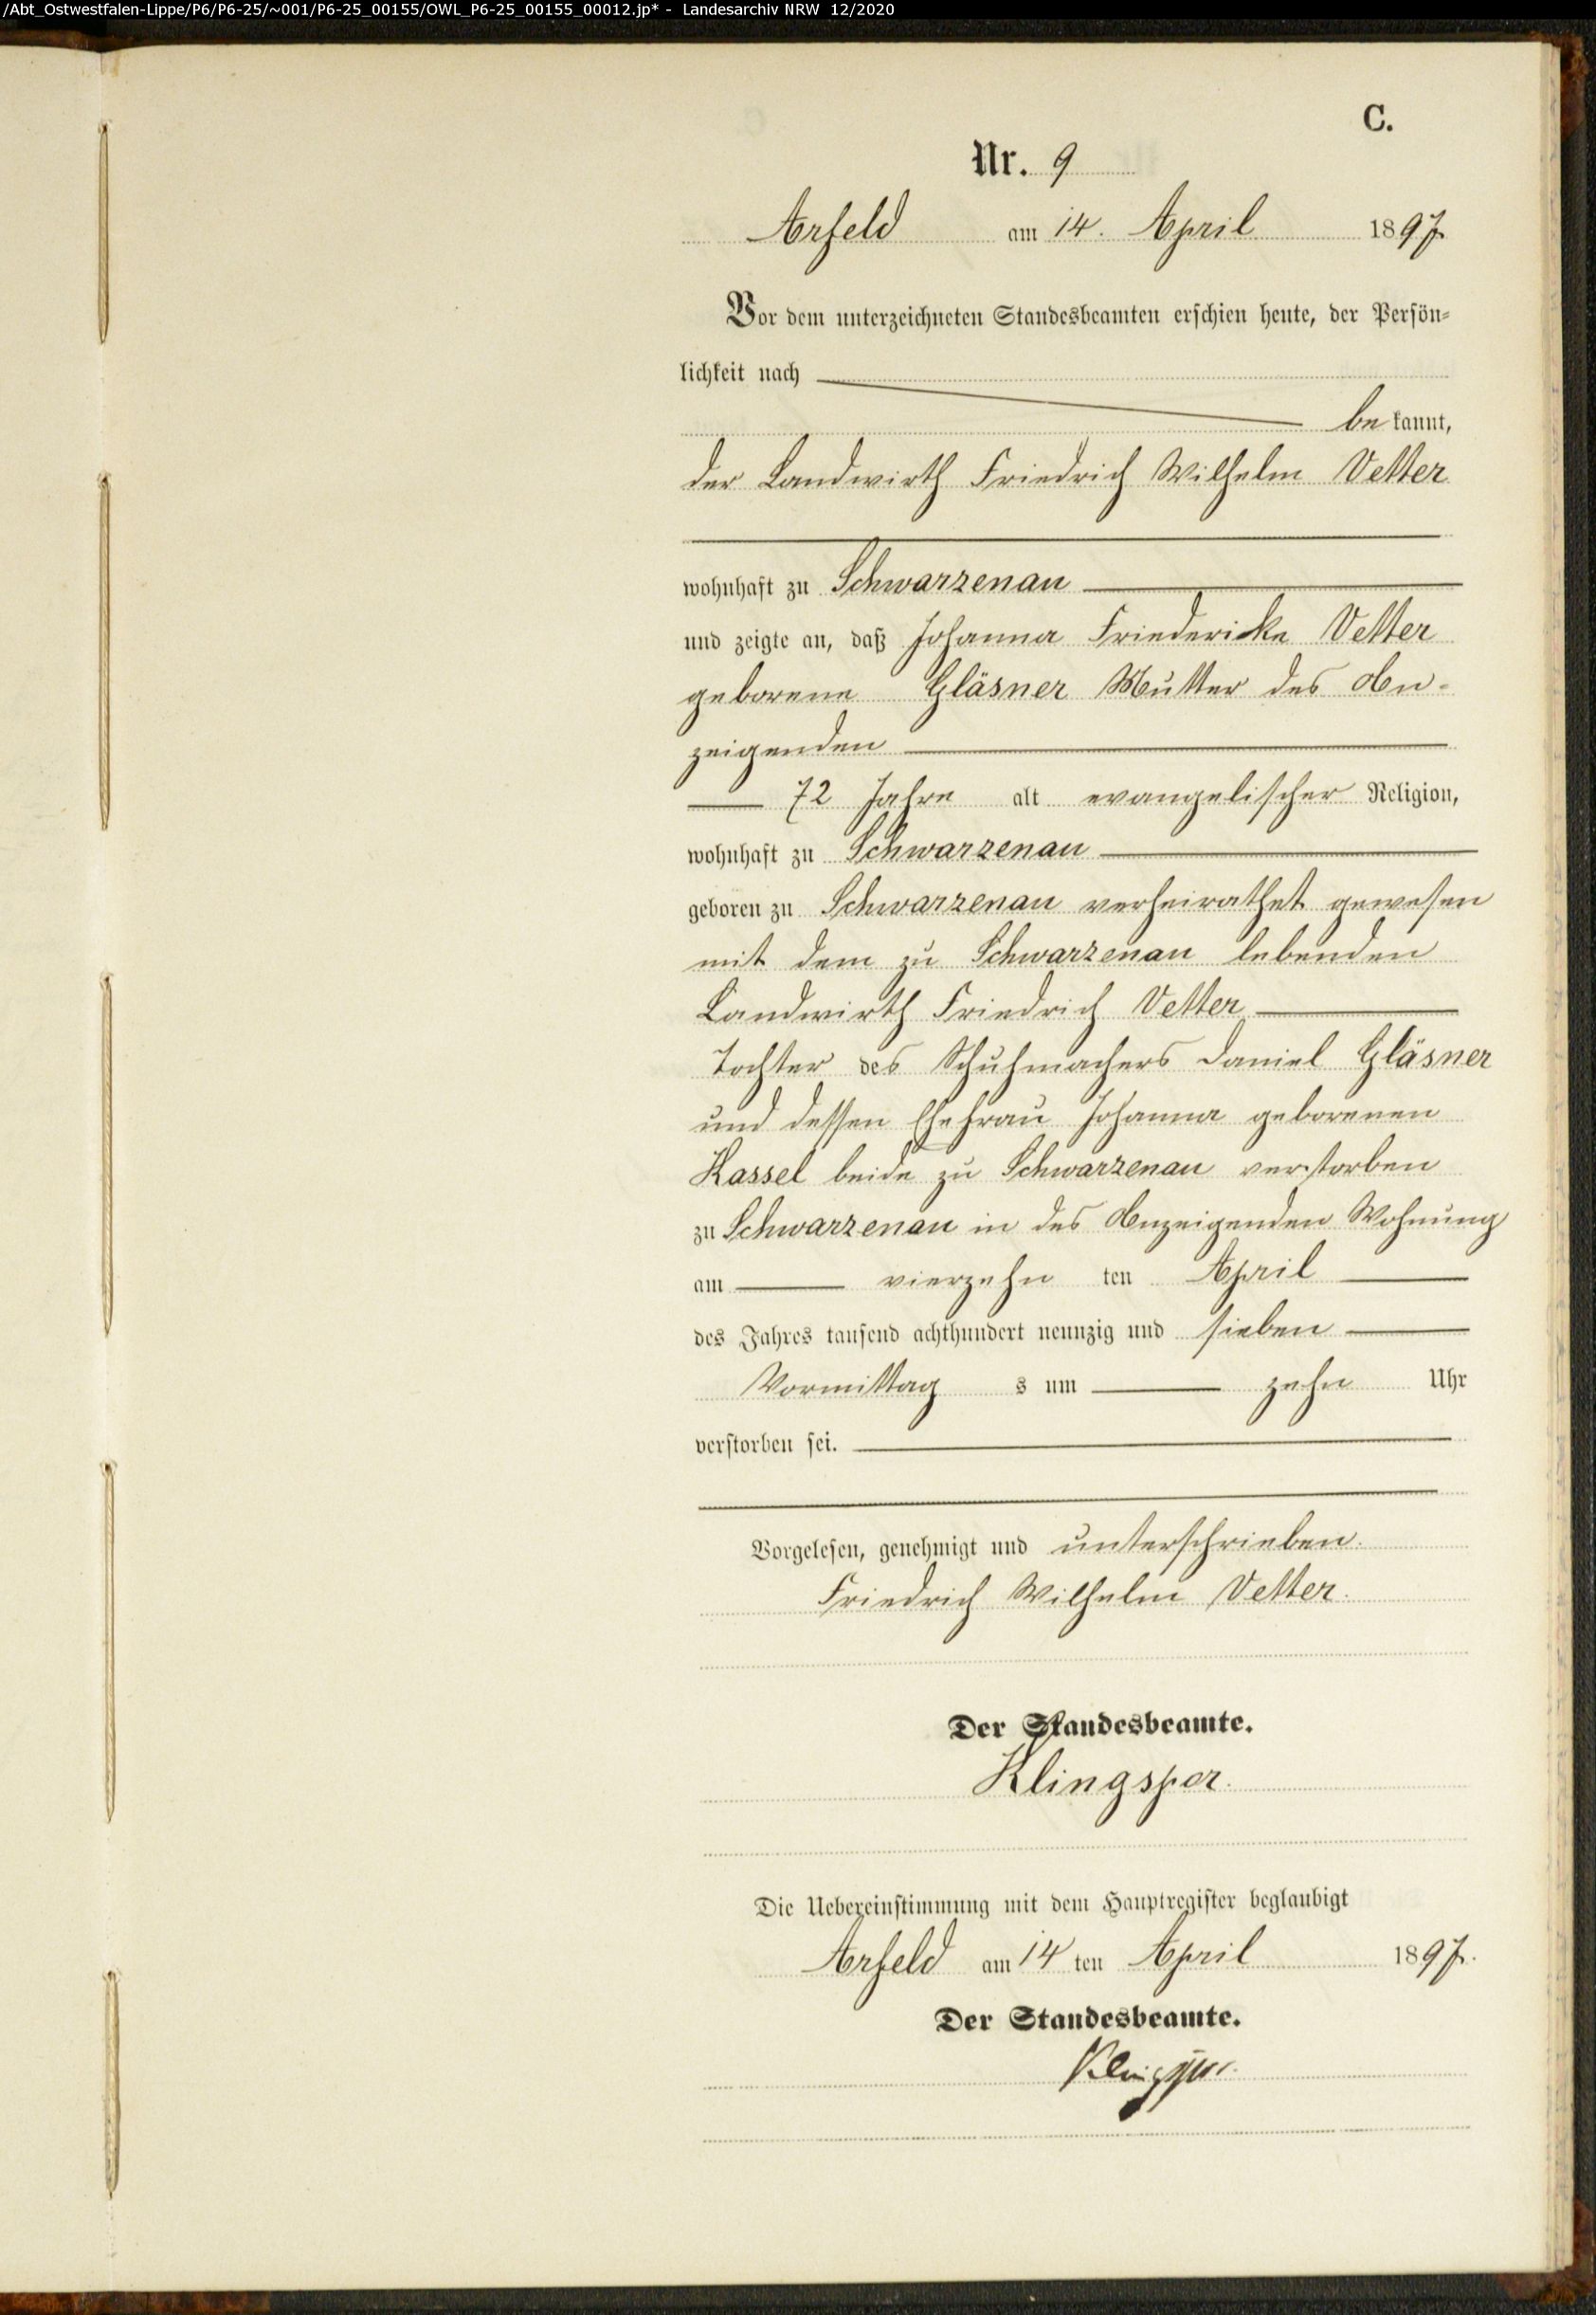 /Abt_Ostwestfalen-Lippe/P6/P6-25/~001/P6-25_00155/OWL_P6-25_00155_00012.jp* - Landesarchiv NRW 12/2020
C.
Nr. 9
Arfeld am 14. April 1897
Vor dem unterzeichneten Standesbeamten erschien heute, der Persön-
lichkeit nach
be kannt,
der Landwirth Friedrich Wilhelm Vetter
wohnhaft zu Schwarzenau
und zeigte an, daß Johanna Friedericke Vetter
geborene Gläsner Mutter des An-
zeigenden
72 Jahre alt evangelischer Religion,
wohnhaft zu Schwarzenau
geboren zu Schwarzenau verheirathet gewesen
mit dem zu Schwarzenau lebenden
Landwirth Friedrich Vetter
Tochter des Schuhmachers Daniel Gläsner
und dessen Ehefrau Johanna geborenen
Kassel beide zu Schwarzenau verstorben
zu Schwarzenau in des Anzeigenden Wohnung
am vierzehn ten April
des Jahres tausend achthundert neunzig und sieben
Vormittag s um zehn Uhr
verstorben sei.
Vorgelesen, genehmigt und unterschrieben.
Friedrich Wilhelm Vetter.
Der Standesbeamte.
Klingspor.
Die Uebereinstimmung mit dem Hauptregister beglaubigt
Arfeld am 14 ten April 1897.
Der Standesbeamte.
Klingspor.